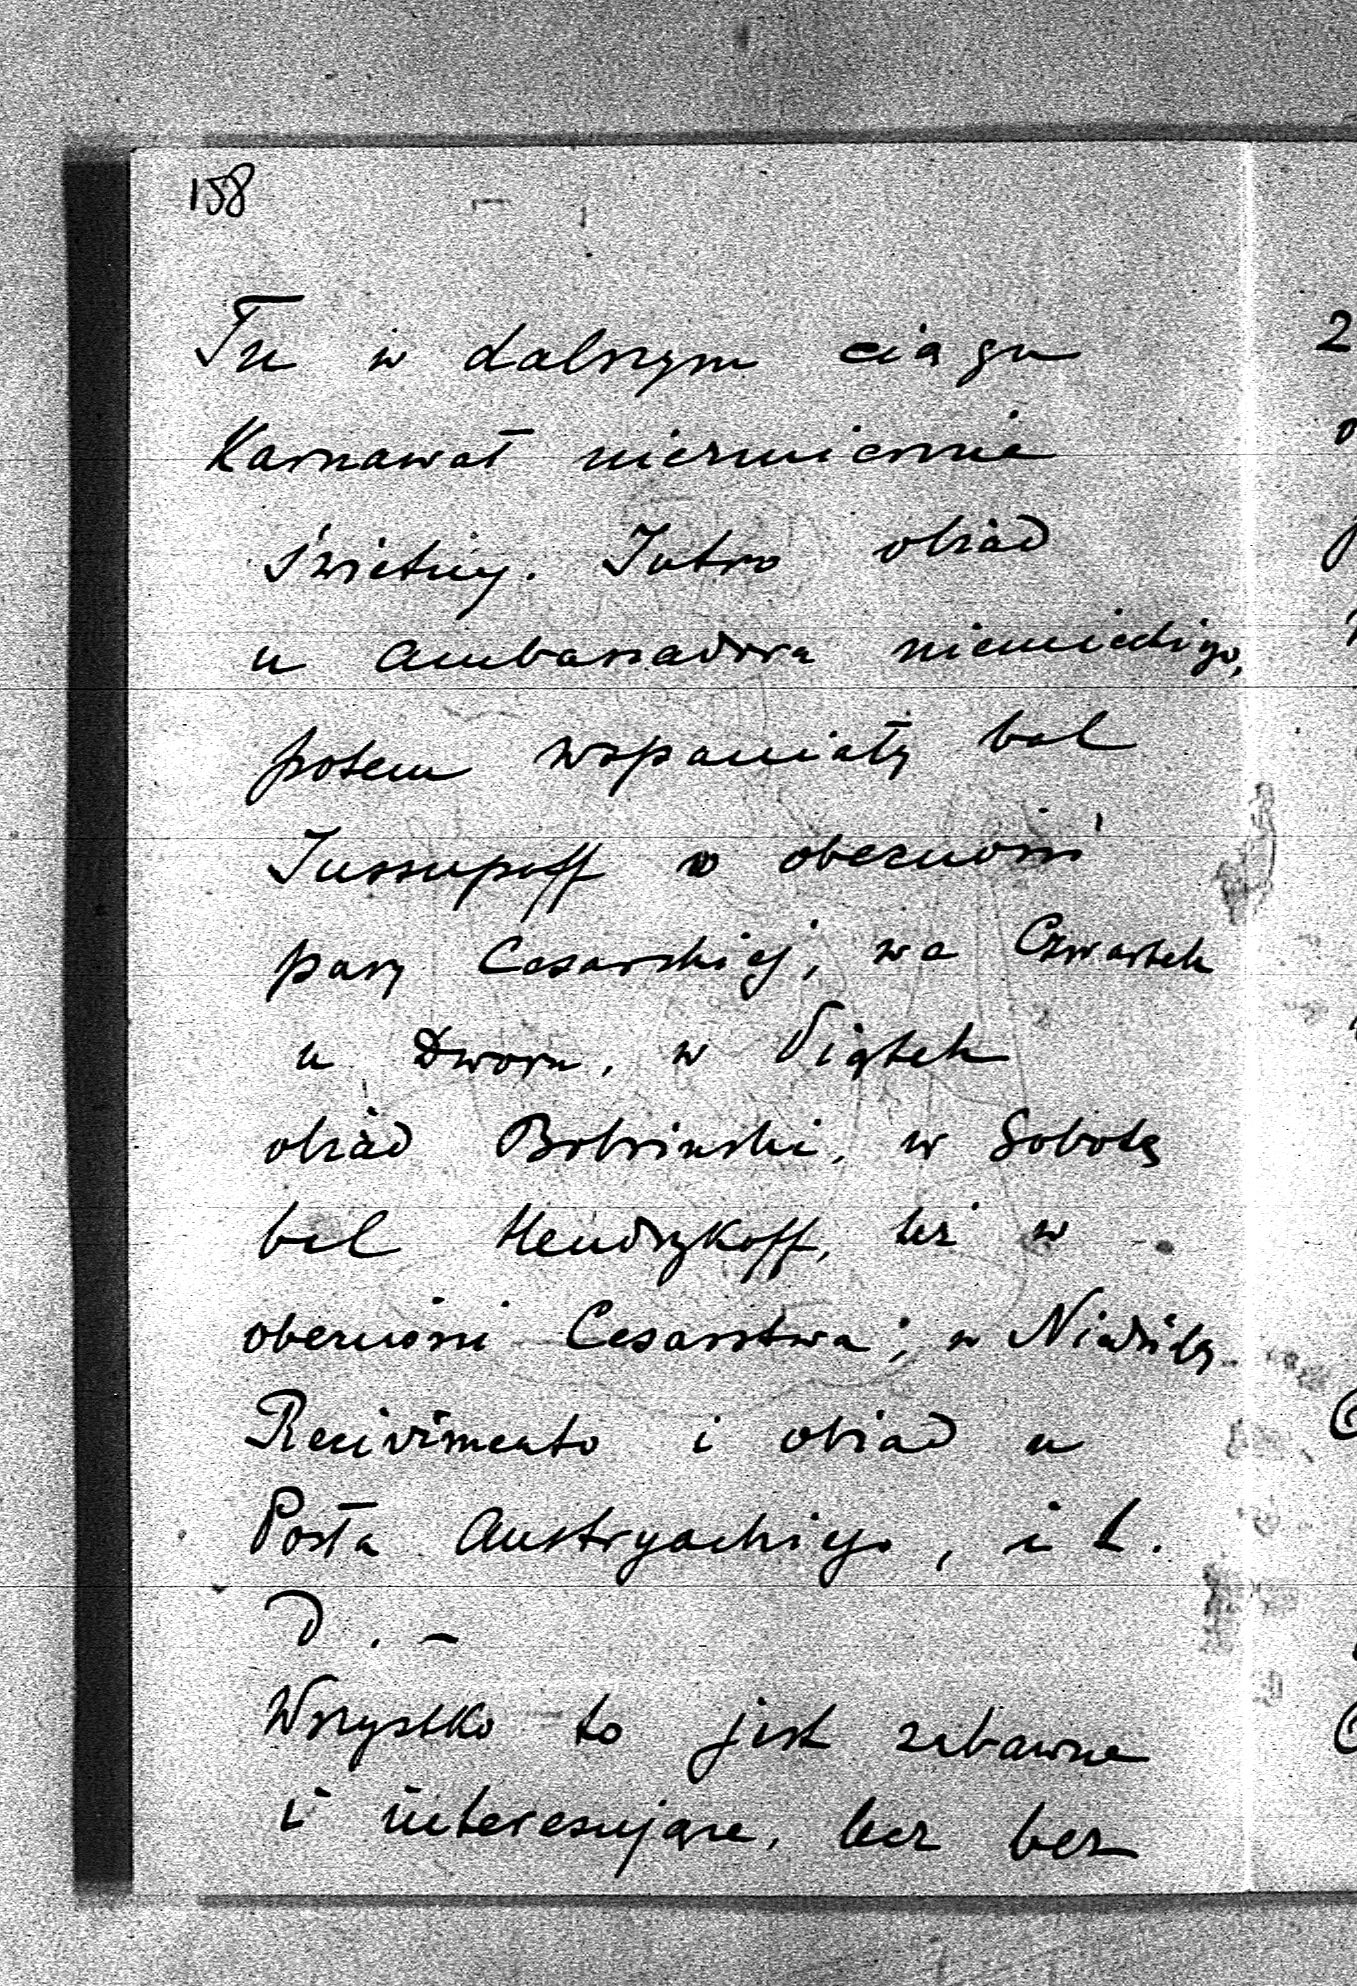 158
Tu w dalszym ciągu
Karnawał niezmiernie
świetny. Jutro obiad
u ambassadora niemieckiego,
potem wspaniały bal
Jussupoff w obecności
pary Cesarskiej, we Czwartek
u Dworu, w Piątek
obiad Bobrinski, w Sobotę
bal Hendrykoff, też w
obecności Cesarstwa; w Niedzielę
Recivimento i obiad u
Posła Austryackiego, i t.
d. –
Wszystko to jest zabawne
i interesujące, lecz bez